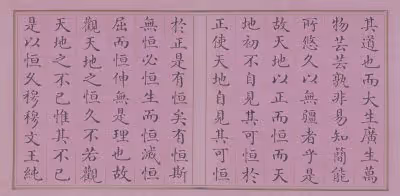 其道也而大生廣生萬
物芸芸孰非易知簡能
所悠久以無疆者乎是
故天地以正而恒而天
地初不自見其可恒於
正使天地自見其可恒
於正是有恒矣有恒斯
無恒必恒生而恒滅恒
屈而恒伸無是理也故
觀天地之恒久不若觀
天地之不已惟其不已
是以恒久穆穆文王純